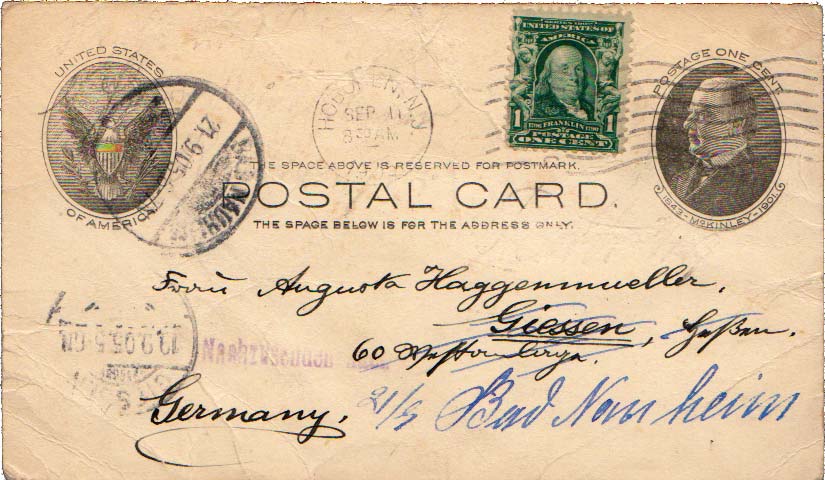 UNITED STATES
OF AMERICA
21.9.05
NAUHEIM
HOBOKEN, N.J.
SEP 11
8 30 AM
SERIES 1902
UNITED STATES OF AMERICA
1 1
1706 FRANKLIN 1790
POSTAGE
ONE CENT
POSTAGE ONE CENT
1843 - McKINLEY - 1901
THE SPACE ABOVE IS RESERVED FOR POSTMARK.
POSTAL CARD.
THE SPACE BELOW IS FOR THE ADDRESS ONLY.
Frau Augusta Haggenmueller,
Giessen, Heßen.
60 Westanlage.
Nachzusenden
Germany,
21/9 Bad Nauheim